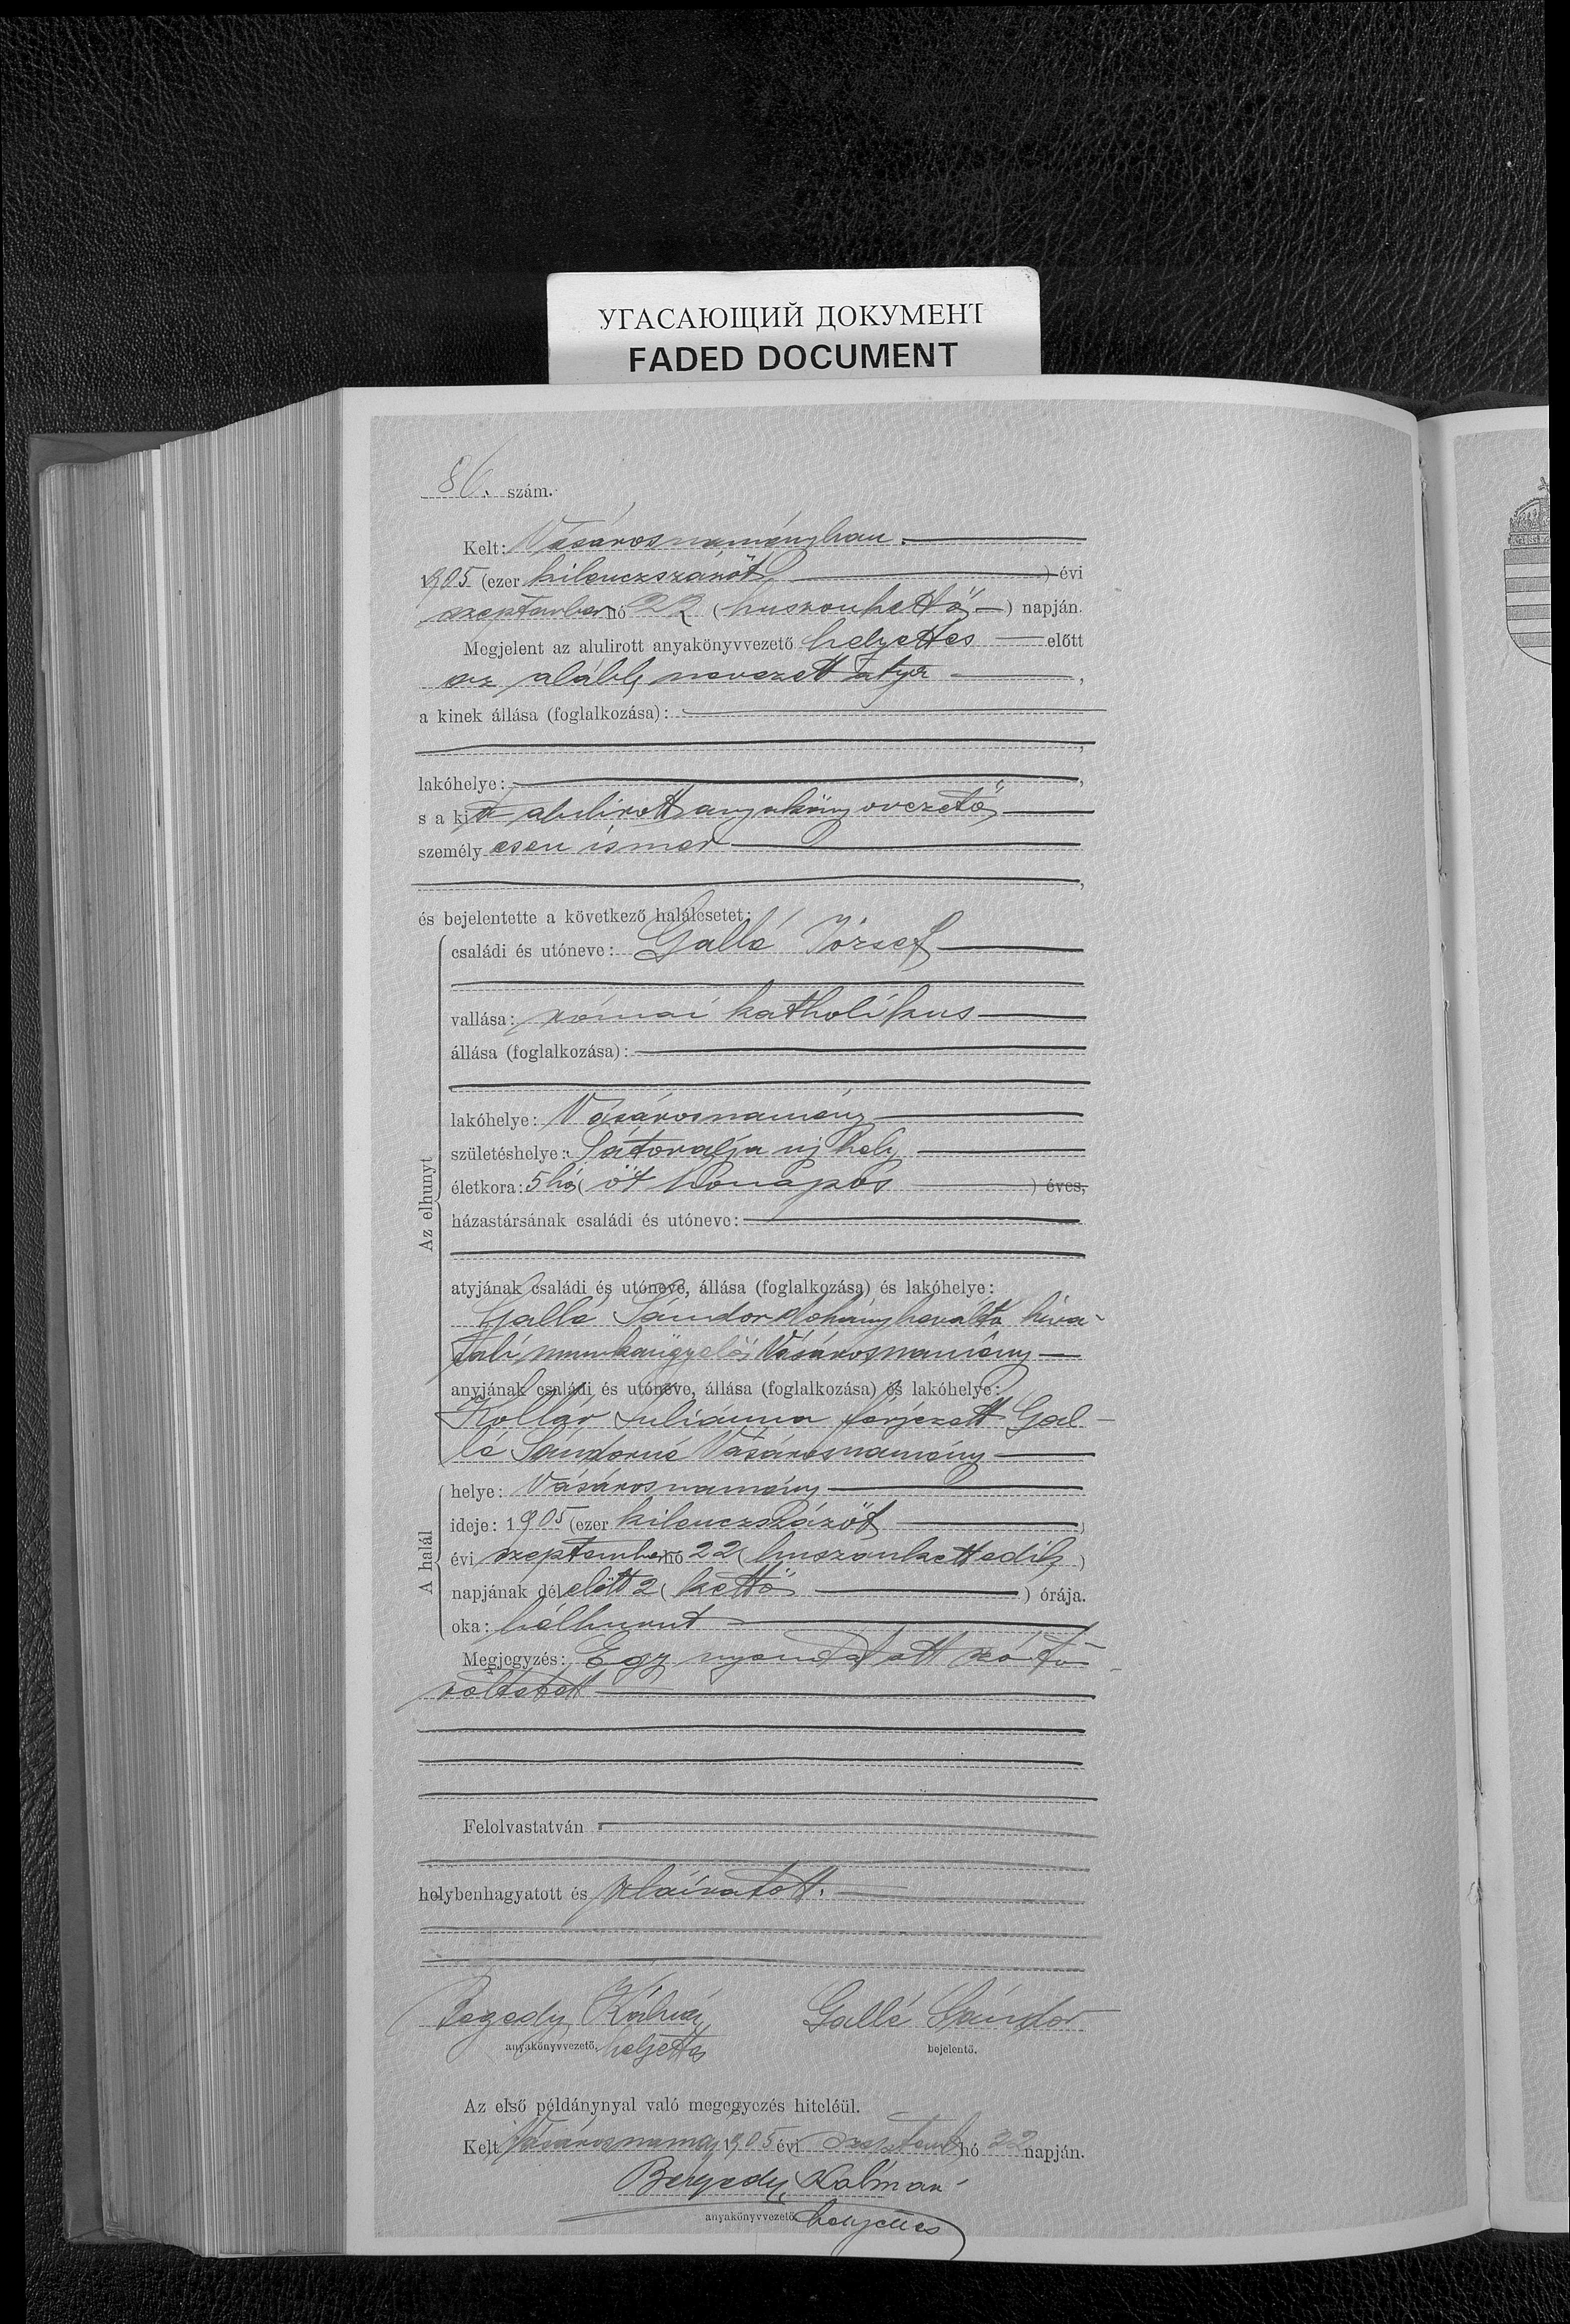 УГАСАЮЩИЙ ДОКУМЕНТ
FADED DOCUMENT
86. szám.
Kelt: Vásárosnaményban.
1905 (ezer kilenczszázöt) évi
szeptember hó 22 (huszonkettő) napján.
Megjelent az alulirott anyakönyvvezető helyettes előtt
az alább nevezett atya,
a kinek állása (foglalkozása):
lakóhelye:
s a kit alulirott anyakönyvvezető
személyesen ismer
és bejelentette a következő halálesetet:
Az elhunyt
családi és utóneve: Gallé József
vallása: római katholikus
állása (foglalkozása):
lakóhelye: Vásárosnamény
születéshelye: Sátoralja uj hely
életkora: 5 hó (öt hónapos) éves,
házastársának családi és utóneve:
atyjának családi és utóneve, állása (foglalkozása) és lakóhelye:
Gallé Sándor dohánybeváltó hiva-
tali munkaügyelő Vásárosnamény
anyjának családi és utóneve, állása (foglalkozása) és lakóhelye:
Kollár Juliánna férjezett Gal-
lé Sándorné Vásárosnamény
A halál
helye: Vásárosnamény
ideje: 1905 (ezer kilenczszázöt)
évi szeptember hó 22 (huszonkettedik)
napjának délelőtt 2 (kettő) órája.
oka: bélhurut
Megjegyzés: Egy nyomtatott szó tö-
röltetett
Felolvastatván
helybenhagyatott és aláiratott.
Kálmán Gallé Sándor
anyakönyvvezető. helyettes bejelentő.
Az első példánynyal való megegyezés hiteléül.
Kelt Vásárosnamény 1905 évi szeptemb hó 22 napján.
Kálmán
anyakönyvvezető helyettes